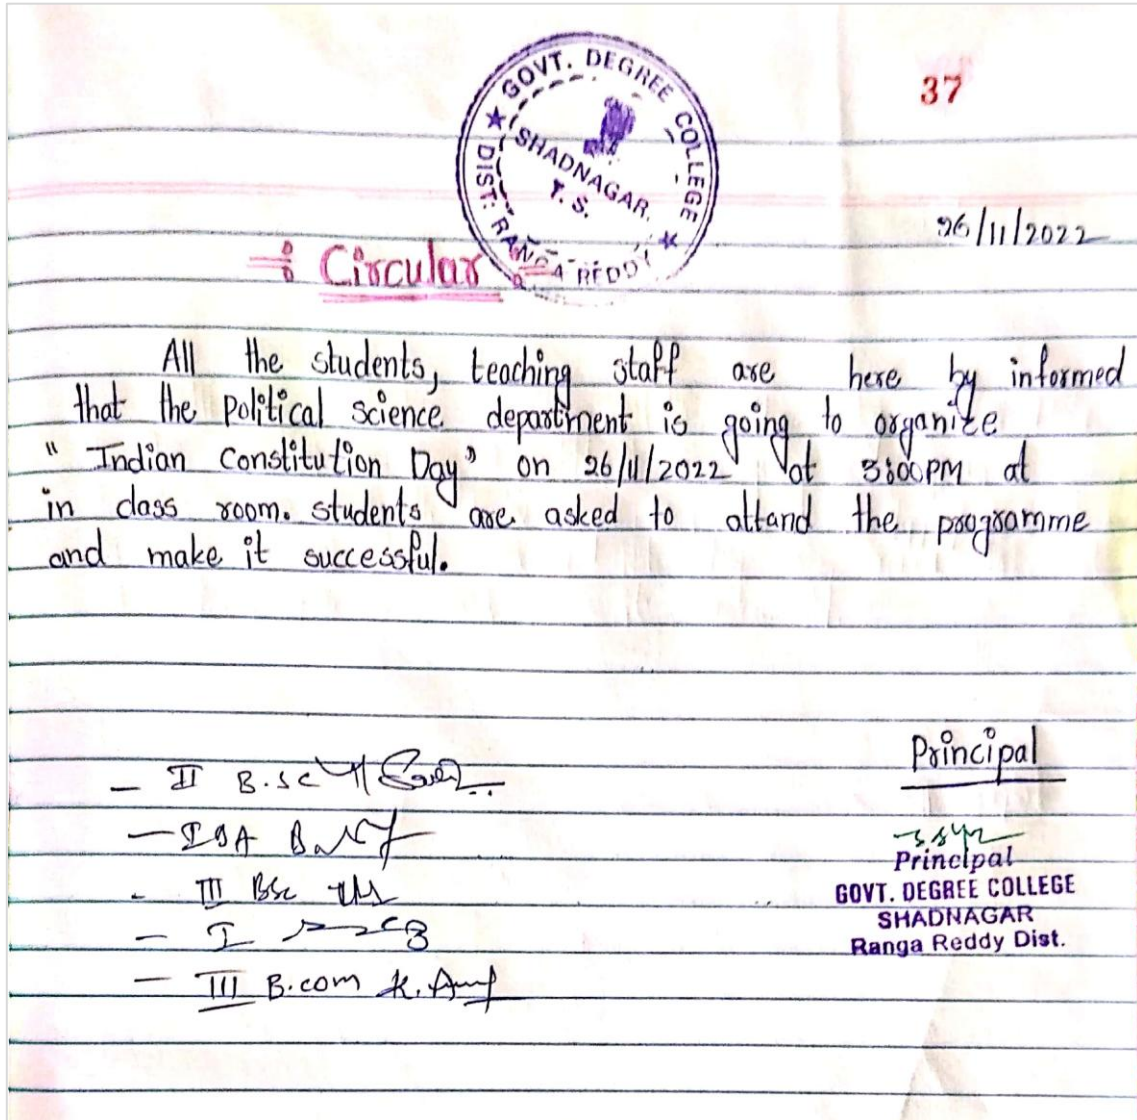 37
GOVT. DEGREE COLLEGE
SHADNAGAR.
T. S.
DIST: RANGA REDDY
26/11/2022
Circular
All the students, teaching staff are here by informed
that the political science department is going to organize
" Indian Constitution Day" on 26/11/2022 at 3:00PM at
in class room. students are asked to attand the programme
and make it successful.
Principal
- II B.sc
- III BSc
- I
- III B.com K.
Principal
GOVT. DEGREE COLLEGE
SHADNAGAR
Ranga Reddy Dist.